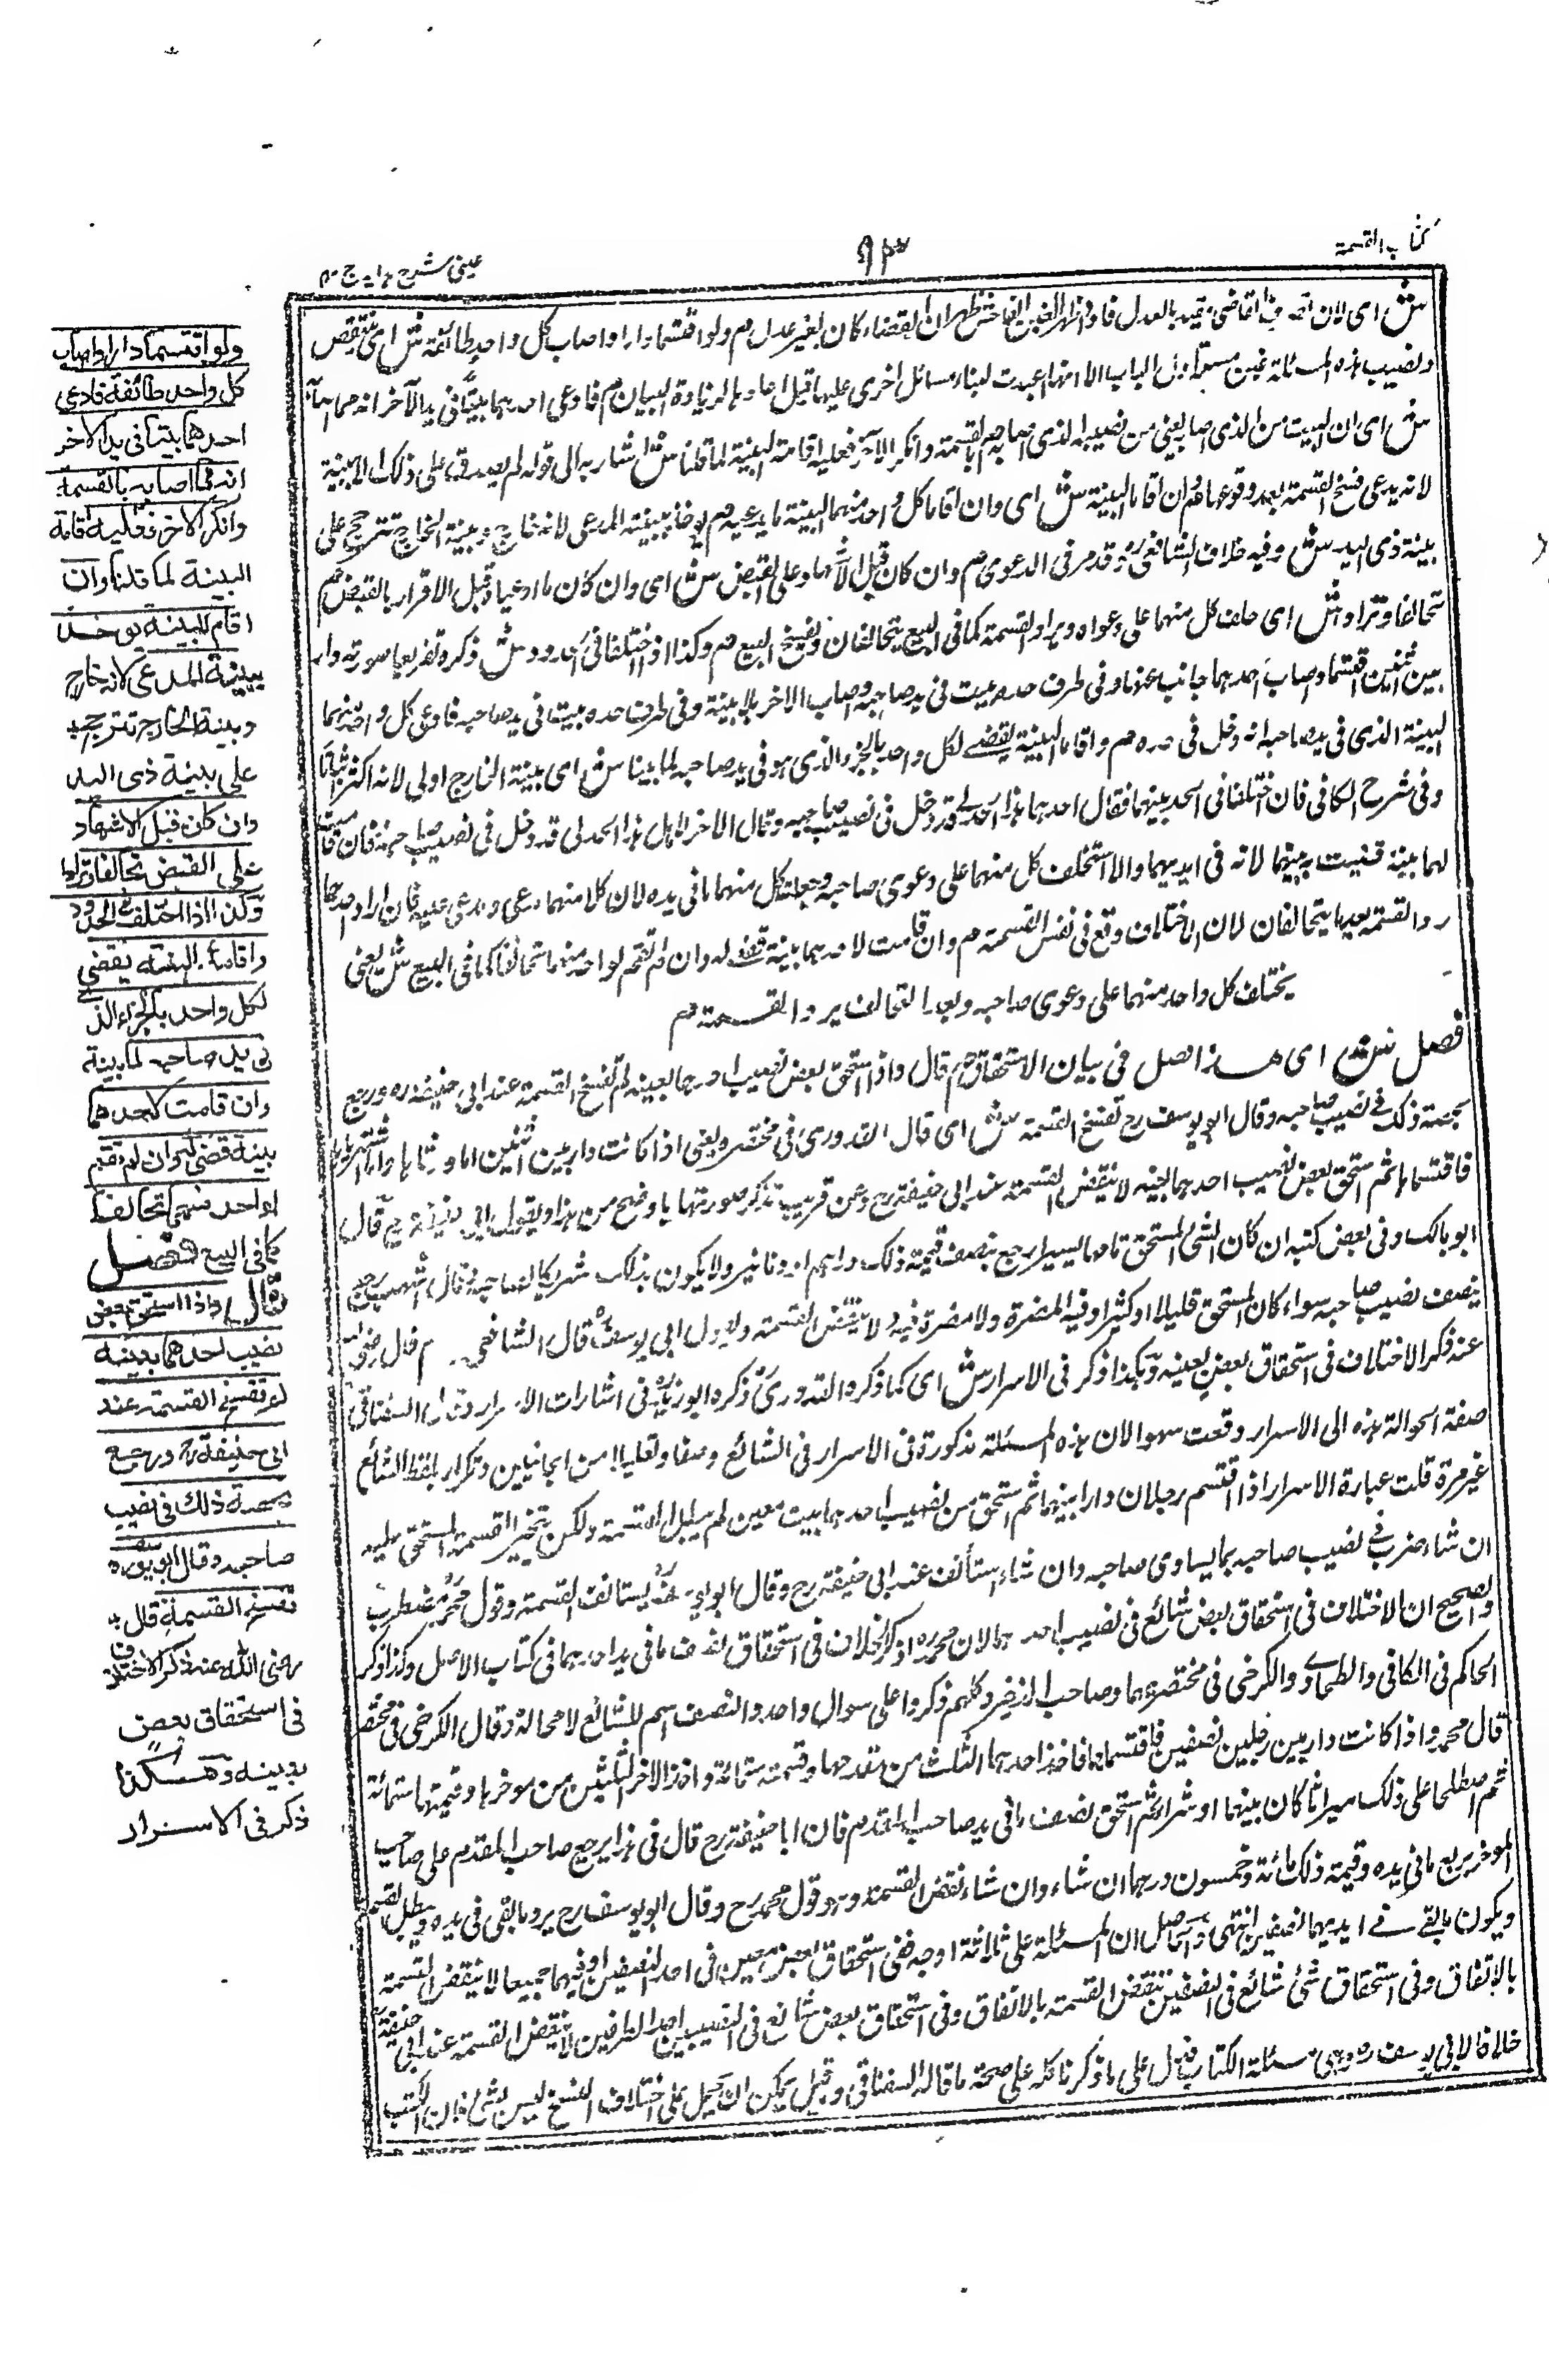 كتاب القسمة
٩٣
عينى شرح هدايه ج ٤
ش اى لان تصرف القاضى مقيد بالعدل فاذا ظهر الغبن الفاحش ظهر ان القضاء كان بغير عدل م ولو اقتسما دارا واصاب كل واحد طائفة ش اى
هذه المسئلة الباب الا انها اعيدت لبناء مسائل اخرى عليها قيل اعادها لزيادة البيان م فادعى احدهما بيتا فى يد الآخر انه مما اصابه
ش اى ان البيت من الذى اصابه يعنى من نصيبه الذى اصابه م بالقسمة وانكر الآخر فعليه اقامة البينة لما قلنا ش اشار به الى قوله لم يصدق على ذلك الا ببينة
لانه يدعى فسخ القسمة بعد وقوعها م وان اقاما البينة ش اى وان اقاما كل واحد منهما البينة لما يدعيه م يوخذ ببينة المدعى لانه خارج وبينة الخارج تترجح على
بينة ذى اليد ش وفيه خلاف الشافعى وقد مر فى الدعوى م وان كان قبل الاشهاد على القبض ش اى وان كان ما ادعيا قبل الاقرار بالقبض م
تحالفا وترادا ش اى حلف كل منهما على دعواه ويرادا القسمة كما فى البيع يتحالفان ويفسخ البيع م وكذا اذا اختلفا فى الحدود ش ذكره تفريعا صورته دار
بين اثنين اقتسما واصاب احدهما جانب منها وفى طرف حده بيت فى يد صاحبه واصاب الاخر وفى طرف حده بيت فى يد صاحبه فادعى كل واحد منهما
البيت الذى فى يد صاحبه انه دخل فى حده م واقاما البينة يقضى لكل واحد بالجزء الذى هو فى يد صاحبه لما بينا ش اى بينة الخارج اولى لانه اكثر اثباتا
وفى شرح الكافى فان اختلفا فى الحد بينهما فقال احدهما هذا الحد لى قد دخل فى نصيب صاحبه وقال الاخر هذا الحد لى قد دخل فى نصيب صاحبه فان قامت
لهما بينة قضيت بينهما لانه فى ايديهما والا استحلف كل منهما على دعوى صاحبه وجعلت لكل منهما ما فى يده لان كلا منهما مدعى ومدعى عليه فان اراد احدهما
رد القسمة بعد ما يتحالفان لان الاختلاف وقع فى نفس القسمة م وان قامت لاحدهما بينة قضى له وان لم تقم لواحد منهما تحالفا كما فى البيع ش يعنى
يختلف كل واحد منهما على دعوى صاحبه وبعد التحالف يرد القسمة م
فصل ش اى هذا فصل فى بيان الاستحقاق م قال واذا استحق بعض نصيب احدهما بعينه لم تفسخ القسمة عند ابى حنيفة ره ورجع
بحصة ذلك فى نصيب صاحبه وقال ابو يوسف رح تفسخ القسمة ش اى قال القدورى فى مختصره يعنى اذا كانت دار بين اثنين
فاقتسماها ثم استحق بعض نصيب احدهما بعينه لا تنتقض القسمة عند ابى حنيفة رح وعن قريب تذكر صورتها باوضح من هذا وبقول ابى حنيفة رح قال
وفى بعض كتبه ان كان الشئ المستحق تافها يسيرا رجع بنصف قيمة ذلك دراهم او دنانير ولا يكون بذلك شريكا لصاحبه وقال
بنصف نصيب صاحبه سواء كان المستحق قليلا او كثيرا وفيه المضرة ولا مضرة فيه ولا تنتقض القسمة ولاول ابى يوسف قال الشافعى م قال رضى الله
عنه ذكر الاختلاف فى استحقاق بعض بعينه وهكذا ذكر فى الاسرار ش اى كما ذكره القدورى ذكره ابو زيد فى اشارات الاسرار وقال السغناقى
صفة الحوالة هذه الى الاسرار وقعت سهوا لان هذه المسئلة مذكورة فى الاسرار فى الشائع وصفا وتعليلا من الجانبين وتكرار لفظ الشائع
غير مرة قلت عبارة الاسرار اذا اقتسم رجلان دارا بينهما ثم استحق من نصيب احدهما بيت معين لم يبطل القسمة ولكن يتخير المستحق عليه
ان شاء ضرب فى نصيب صاحبه بما يساوى صاحبه وان شاء استأنف عند ابى حنيفة رح وقال ابو يوسف يستأنف القسمة وقول محمد مضطرب
والصحيح ان الاختلاف فى استحقاق بعض شائع فى نصيب احدهما لان محمد ره ذكر الخلاف فى استحقاق نصف ما فى يد احدهما فى كتاب الاصل وكذا ذكر
الحاكم فى الكافى والطحاوى والكرخى فى مختصريهما وكلهم ذكروا على سوال واحد والنصف اسم للشائع لا محالة وقال الكرخى فى مختصره
قال محمد واذا كانت دار بين رجلين نصفين فاقتسماها فاخذ احدهما الثلث من مقدمها وقيمته ستمائة واخذ الاخر الثلثين من موخرها وقيمتها ستمائة
ثم اصطلحا على ذلك ميراثا كان بينهما او شراء ثم استحق نصف ما فى يد صاحب المقدم فان ابا حنيفة رح قال فى هذا يرجع صاحب المقدم على صاحب
الموخر بربع ما فى يده وقيمة ذلك مائة وخمسون درهما ان شاء وان شاء نقض القسمة وهو قول محمد رح وقال ابو يوسف رح يرد ما بقى فى يده وتبطل القسمة
ويكون ما بقى فى ايديهما نصفين انتهى والحاصل ان المسئلة على ثلاثة اوجه ففى استحقاق بعض معين فى احد النصيبين او فيهما جميعا لا تنتقض القسمة
بالاتفاق وفى استحقاق شئ شائع فى النصفين تنتقض القسمة بالاتفاق وفى استحقاق بعض شائع فى النصيبين احد الطرفين لا تنتقض القسمة عند ابى حنيفة
خلافا لابى يوسف ره وهى مسئلة الكتاب فنزل على ما ذكرنا كله على صحة ما قاله السغناقى وقيل يمكن ان يحمل على اختلاف النسخ ليس بشئ فان الكتب
ولو اقتسما دارا واصاب
كل واحد طائفة فادعى
احدهما بيتا فى يد الاخر
انه مما اصابه بالقسمة
وانكر الاخر فعليه اقامة
البينة لما قلنا وان
اقام البينة يوخذ
ببينة المدعى لانه خارج
وبينة الخارج تترجح
على بينة ذى اليد
وان كان قبل الاشهاد
على القبض تحالفا وترادا
وكذا اذا اختلفا فى الحدود
واقاما البينة يقضى
لكل واحد بالجزء الذى
فى يد صاحبه لما بينا
وان قامت لاحدهما
بينة قضى له وان لم تقم
لواحد منهما تحالفا
كما فى البيع فصل
قال واذا استحق بعض
نصيب احدهما بعينه
لم تفسخ القسمة عند
ابى حنيفة رح ورجع
بحصة ذلك فى نصيب
صاحبه وقال ابو يوسف ره
تفسخ القسمة قال
رضى الله عنه ذكر الاختلاف
فى استحقاق بعض
بعينه وهكذا
ذكر فى الاسرار